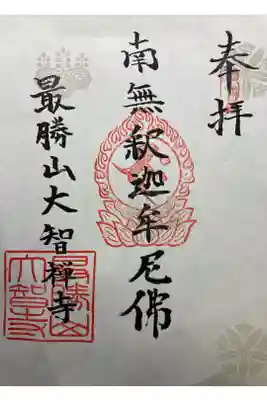 奉拝
南無釈迦牟尼佛
最勝山大智禅寺